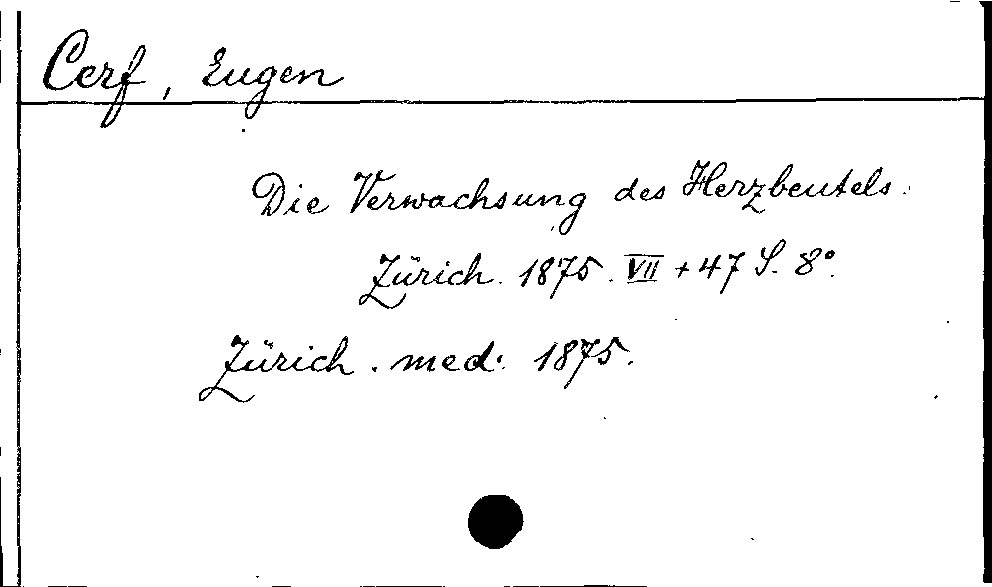 Cerf, Eugen
Die Verwachsung des Herzbeutels.
Zürich. 1875. VII + 47 S. 8°.
Zürich. med. 1875.